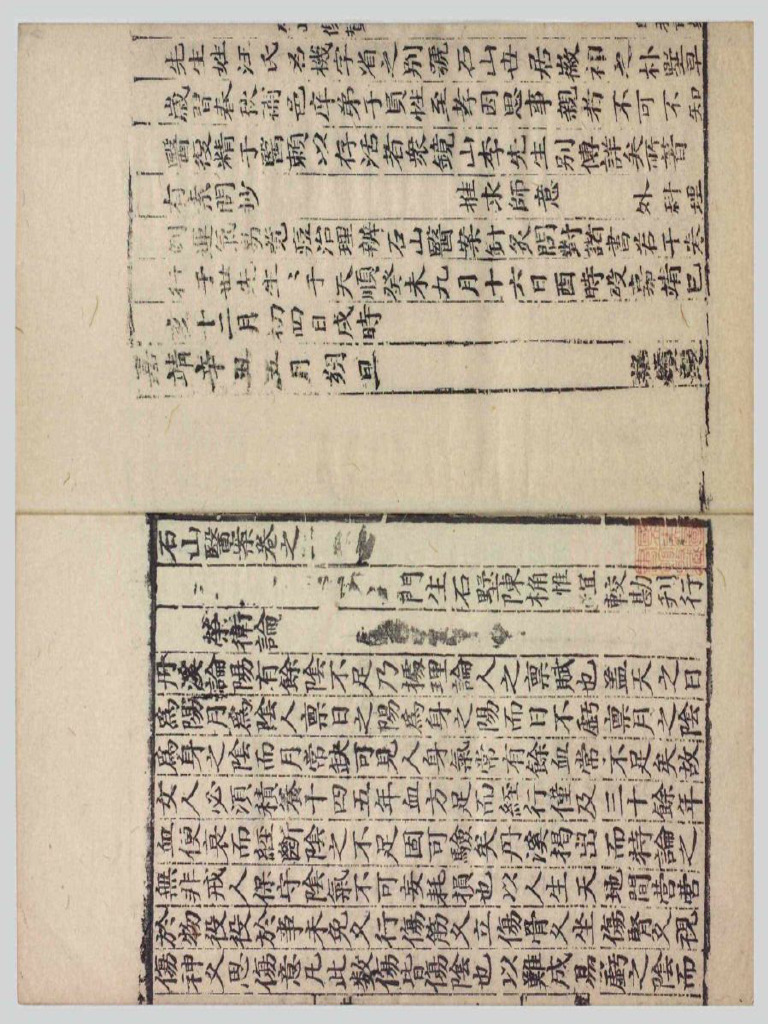 先生姓汪氏名機字省之別號石山世居徽祁之朴墅早
歲習春秋補邑庠弟子員性至孝因思事親者不可不知
醫復精于醫賴以存活者衆鏡山李先生別傳詳矣所著
有素問抄 推求師意 外科理
例運氣易覽痘治理辨石山醫案針灸問對諸書若干矣
行于世先生〻于天順癸未九月十六日酉時歿嘉靖己
亥十二月初四日戌時
嘉靖辛丑五月朔旦
石山醫案卷之
門生石墅陳桷惟宜較勘刋行
榮衛論
丹溪論陽有餘陰不足乃據理論人之禀賦也蓋天之日
爲陽月爲陰人禀日之陽爲身之陽而日不虧禀月之陰
爲身之陰而月常缺可見人身氣常有餘血常不足矣故
女人必須積養十四五年血方足而経行僅及三十餘年
血便衰而經斷陰之不足固可驗矣丹溪揭出而特論之
無非戒人保守陰氣不可妄耗損也以人生天地間營營
於物役役於事未免久行傷筋久立傷骨久坐傷腎久視
傷神久思傷意凡此數傷皆傷陰也以難成易虧之陰而